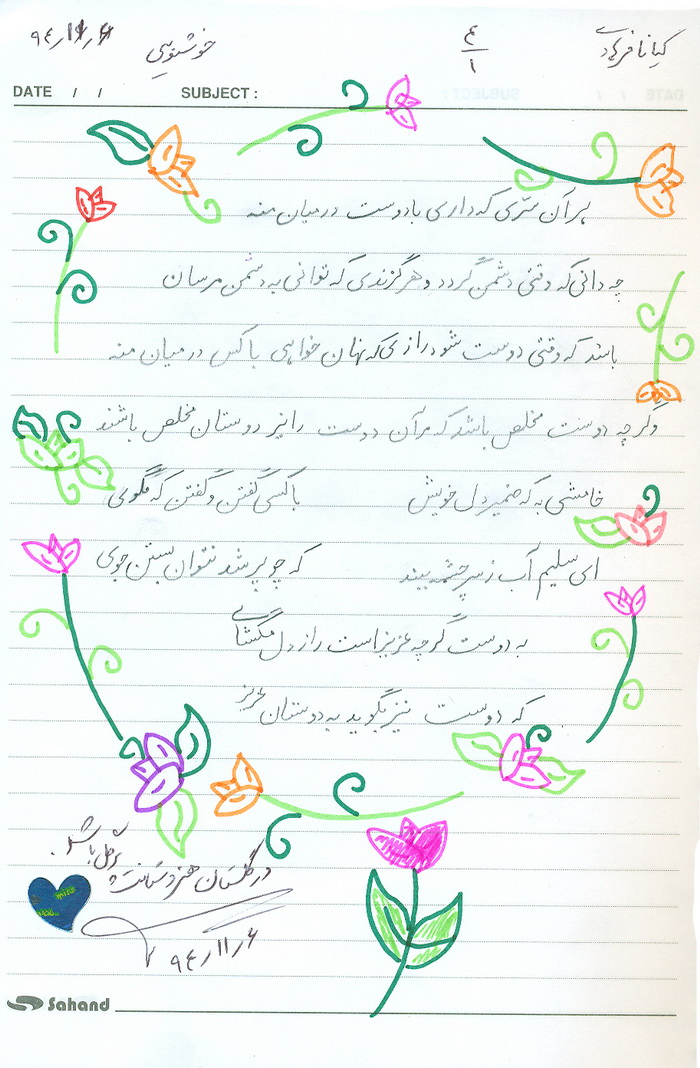 کیانا فرهادی
۴/۱
خوشنویسی
۹۴/۱۱/۶
DATE / /
SUBJECT :
هر آن سرّی که داری با دوست در میان منه
چه دانی که وقتی دشمن گردد و هر گزندی که توانی به دشمن مرسان
باشد که وقتی دوست شود رازی که نهان خواهی با کس در میان منه
وگرچه دوست مخلص باشد که مر آن دوست را نیز دوستان مخلص باشند
خامشی به که ضمیر دل خویش
با کسی گفتن و گفتن که مگوی
ای سلیم آب ز سرچشمه ببند
که چو پر شد نتوان بستن جوی
به دوست گرچه عزیز است راز دل مگشای
که دوست نیز بگوید به دوستان عزیز
در گلستان هنر دستانت پر گل باشد.
۹۴/۱۱/۶
Sahand